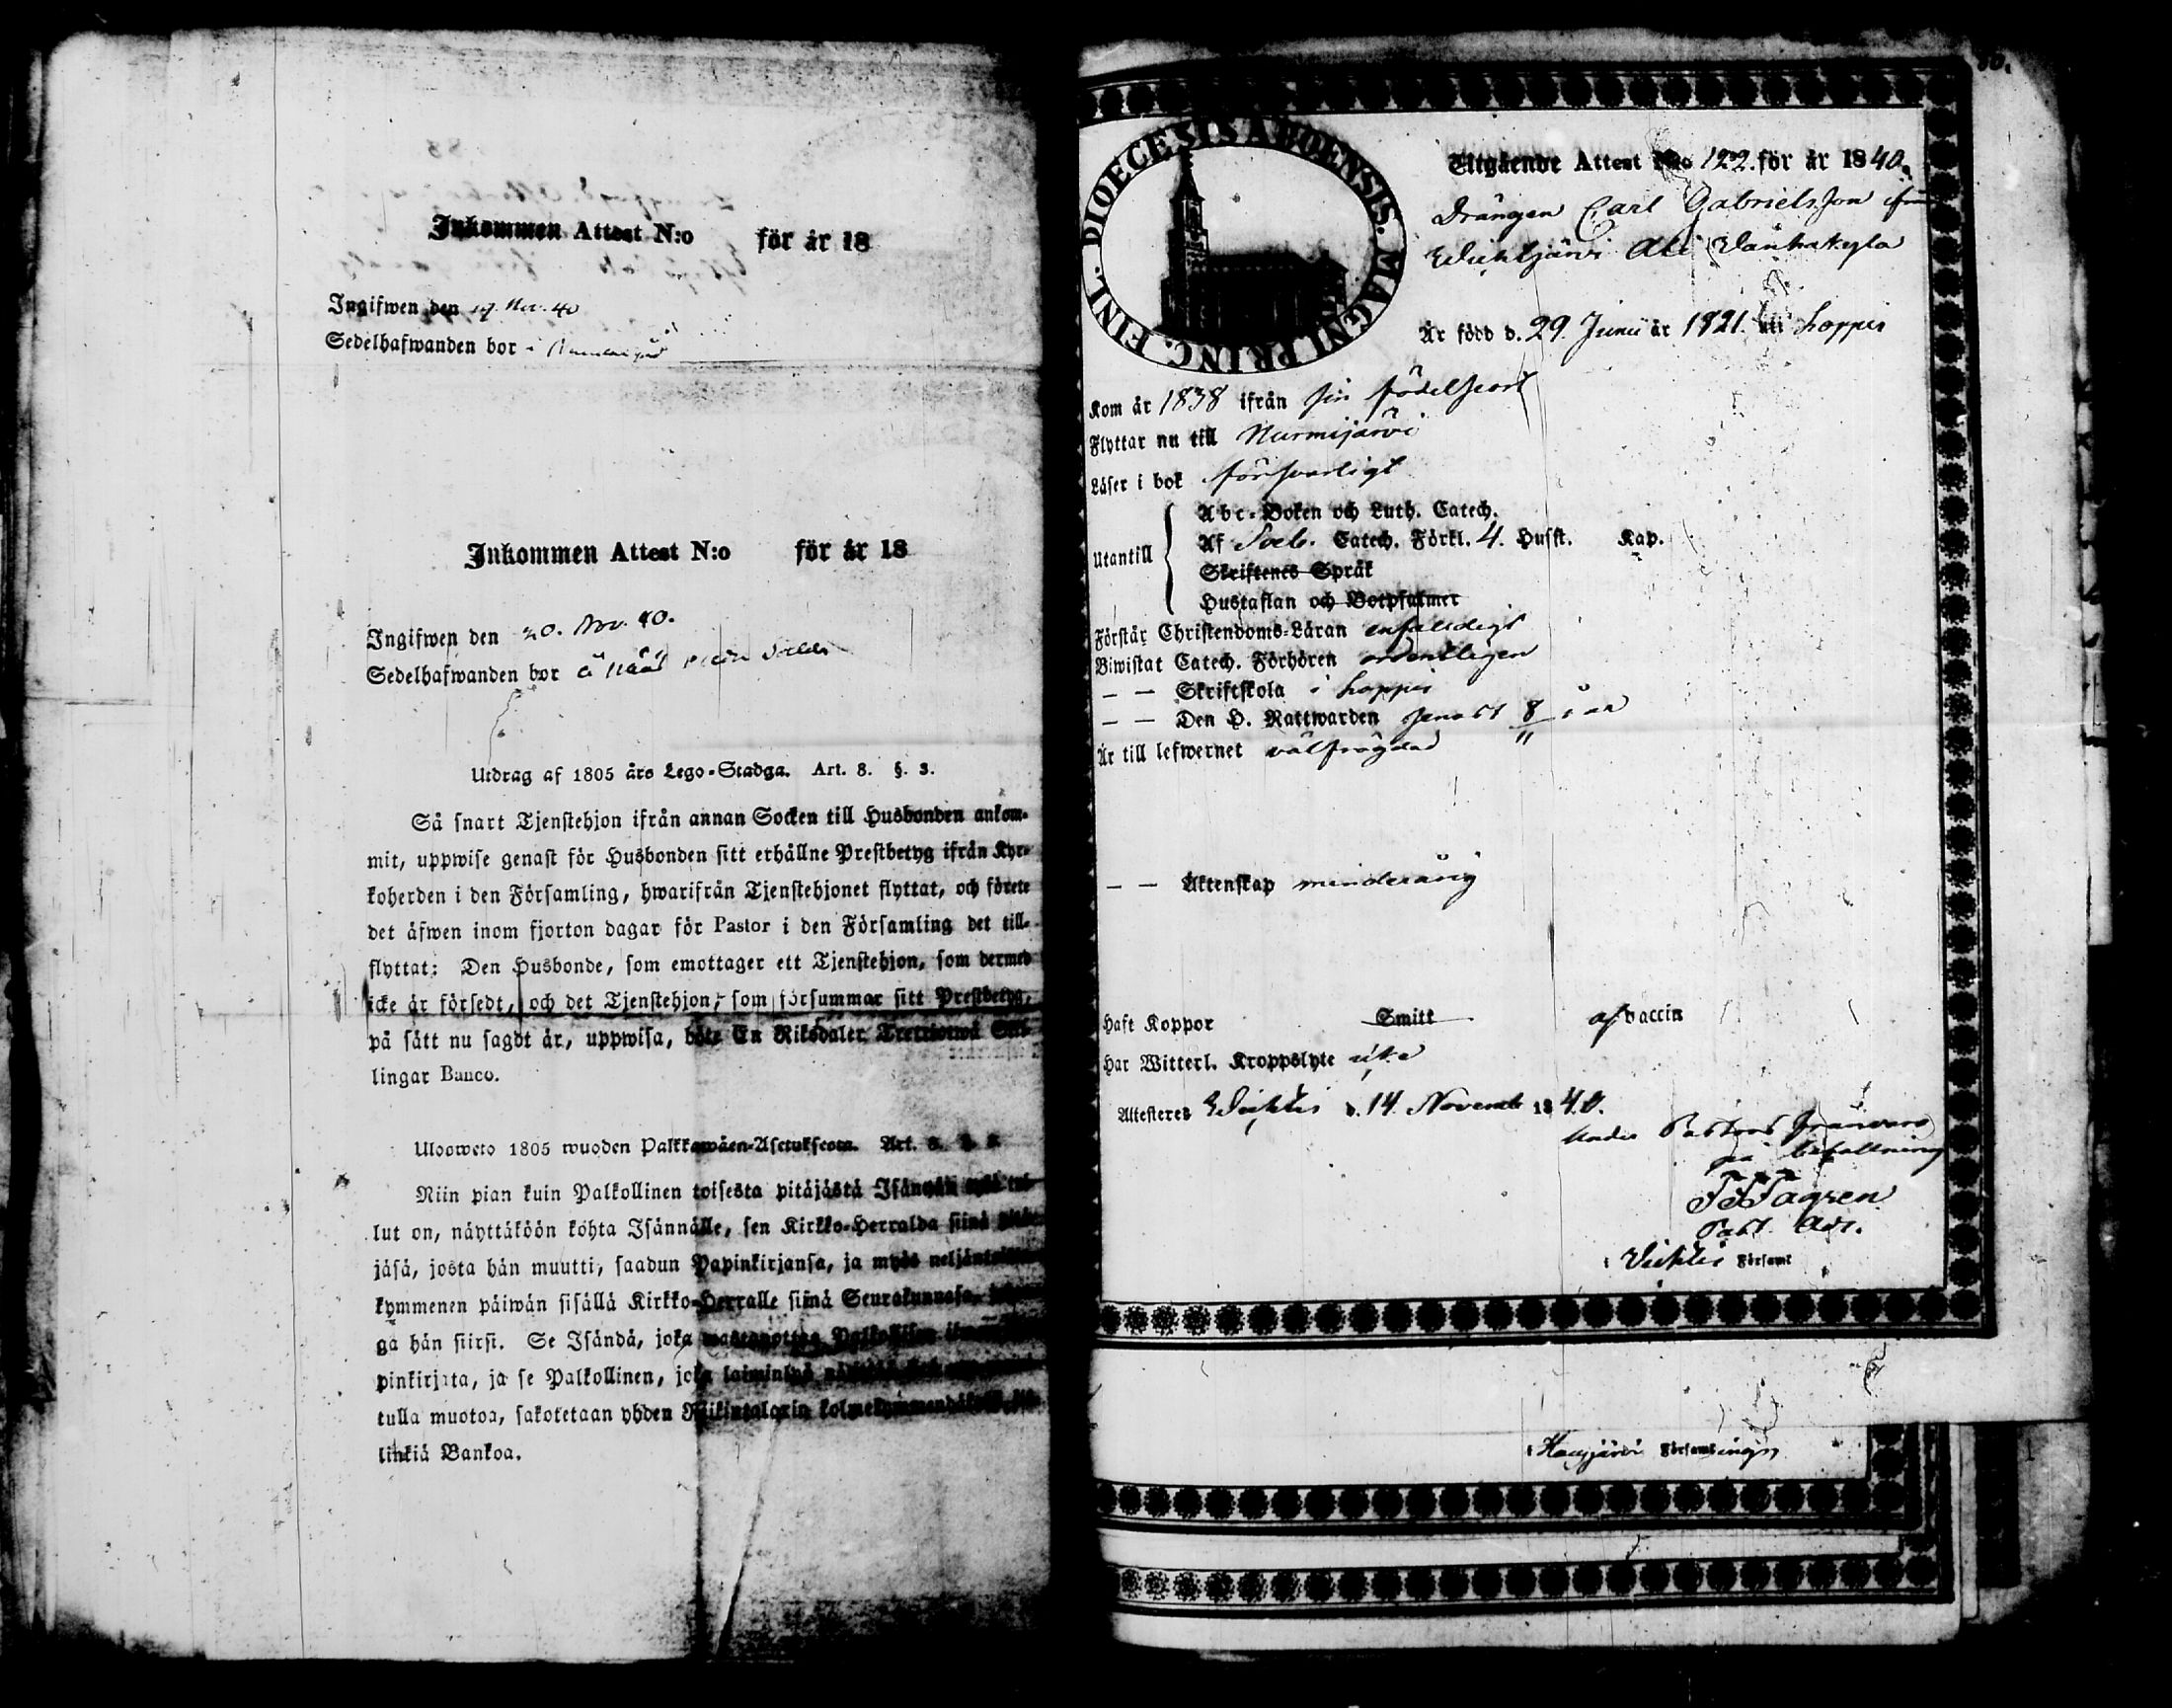 Inkommen Attest N:o för år 18
Ingifwen den 19 Nov. 40
Sedelhafwanden bor i
Inkommen Attest N:o för år 18
Ingifwen den 20. Nov. 40.
Sedelhafwanden bor å
Utdrag af 1805 års Lego-Stadga. Art. 8. §. 3.
Så snart Tjenstehjon ifrån annan Socken till Husbonden ankom-
mit, uppwise genast för Husbonden sitt erhållne Prestbetyg ifrån Kyr-
koherden i den Församling, hwarifrån Tjenstehjonet flyttat, och förete
det äfwen inom fjorton dagar för Pastor i den Församling det till-
flyttat: Den Husbonde, som emottager ett Tjenstehjon, som dermed
icke är försedt, och det Tjenstehjon, som försummar sitt Prestbetyg,
på sätt nu sagdt är, uppwisa, böte En Riksdaler Trettiotwå Skil-
lingar Banco.
Ulosweto 1805 wuoden Palkkawäen-Asetuksesta. Art. 8.
Niin pian kuin Palkollinen toisesta pitäjästä Isännän tykö tul-
lut on, näyttäköön kohta Isännälle, sen Kirkko-Herralda siinä
jäsä, josta hän muutti, saadun Papinkirjansa, ja myös neljäntoista
kymmenen päiwän sisällä Kirkko-Herralle siinä Seurakunnasa,
ga hän siirsi. Se Isändä, joka wastanottaa Palkollisen
pinkirjata, ja se Palkollinen, joka laiminlyö
tulla muotoa, sakotetaan yhden Riikintalarin kolmekymmendäkaksi
linkiä Bankoa.
DIOECESIS ABOENSIS. MAGNI PRINC. FINL.
Utgående Attest N:o 122. för år 1840.
Drängen Carl Gabrielsson ifrån
Wichtjärvi Ali Wanhakylä
Är född d. 29. Junii år 1821. uti Loppis
Kom år 1838 ifrån sin födelseort
Flyttar nu till Nurmijärvi
Läser i bok försvarligt
Utantill Abc-Boken och Luth. Catech.
Af Sveb. Catech. Förkl. 4. Husst. Kap.
Skriftenes Språk
Hustaflan och Botpsalmer
Förstår Christendoms-Läran enfaldigt
Biwistat Catech. Förhören ordentligen
— — Skriftskola i Loppis
— — Den H. Nattwarden senast 8/11 i år
Är till lefwernet välfrägdad
— — Äktenskap minderårig
Haft Koppor Smitt af vaccin
Har Witterl. Kroppslyte icke
Attesteres Wichtis d. 14. Novemb 1840.
Under Pastors frånvaro
på befallning
Past. Adj.
i Wichtis Församl
Församl